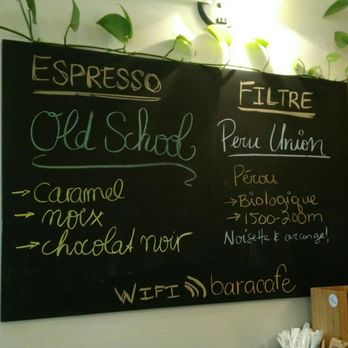 ESPRESSO
Old School
→ Caramel
→ noix
→ chocolat noir
FILTRE
Peru Union
Pérou
→ Biologique
→ 1500-200m
Noisette & orange!
WIFI baracafe